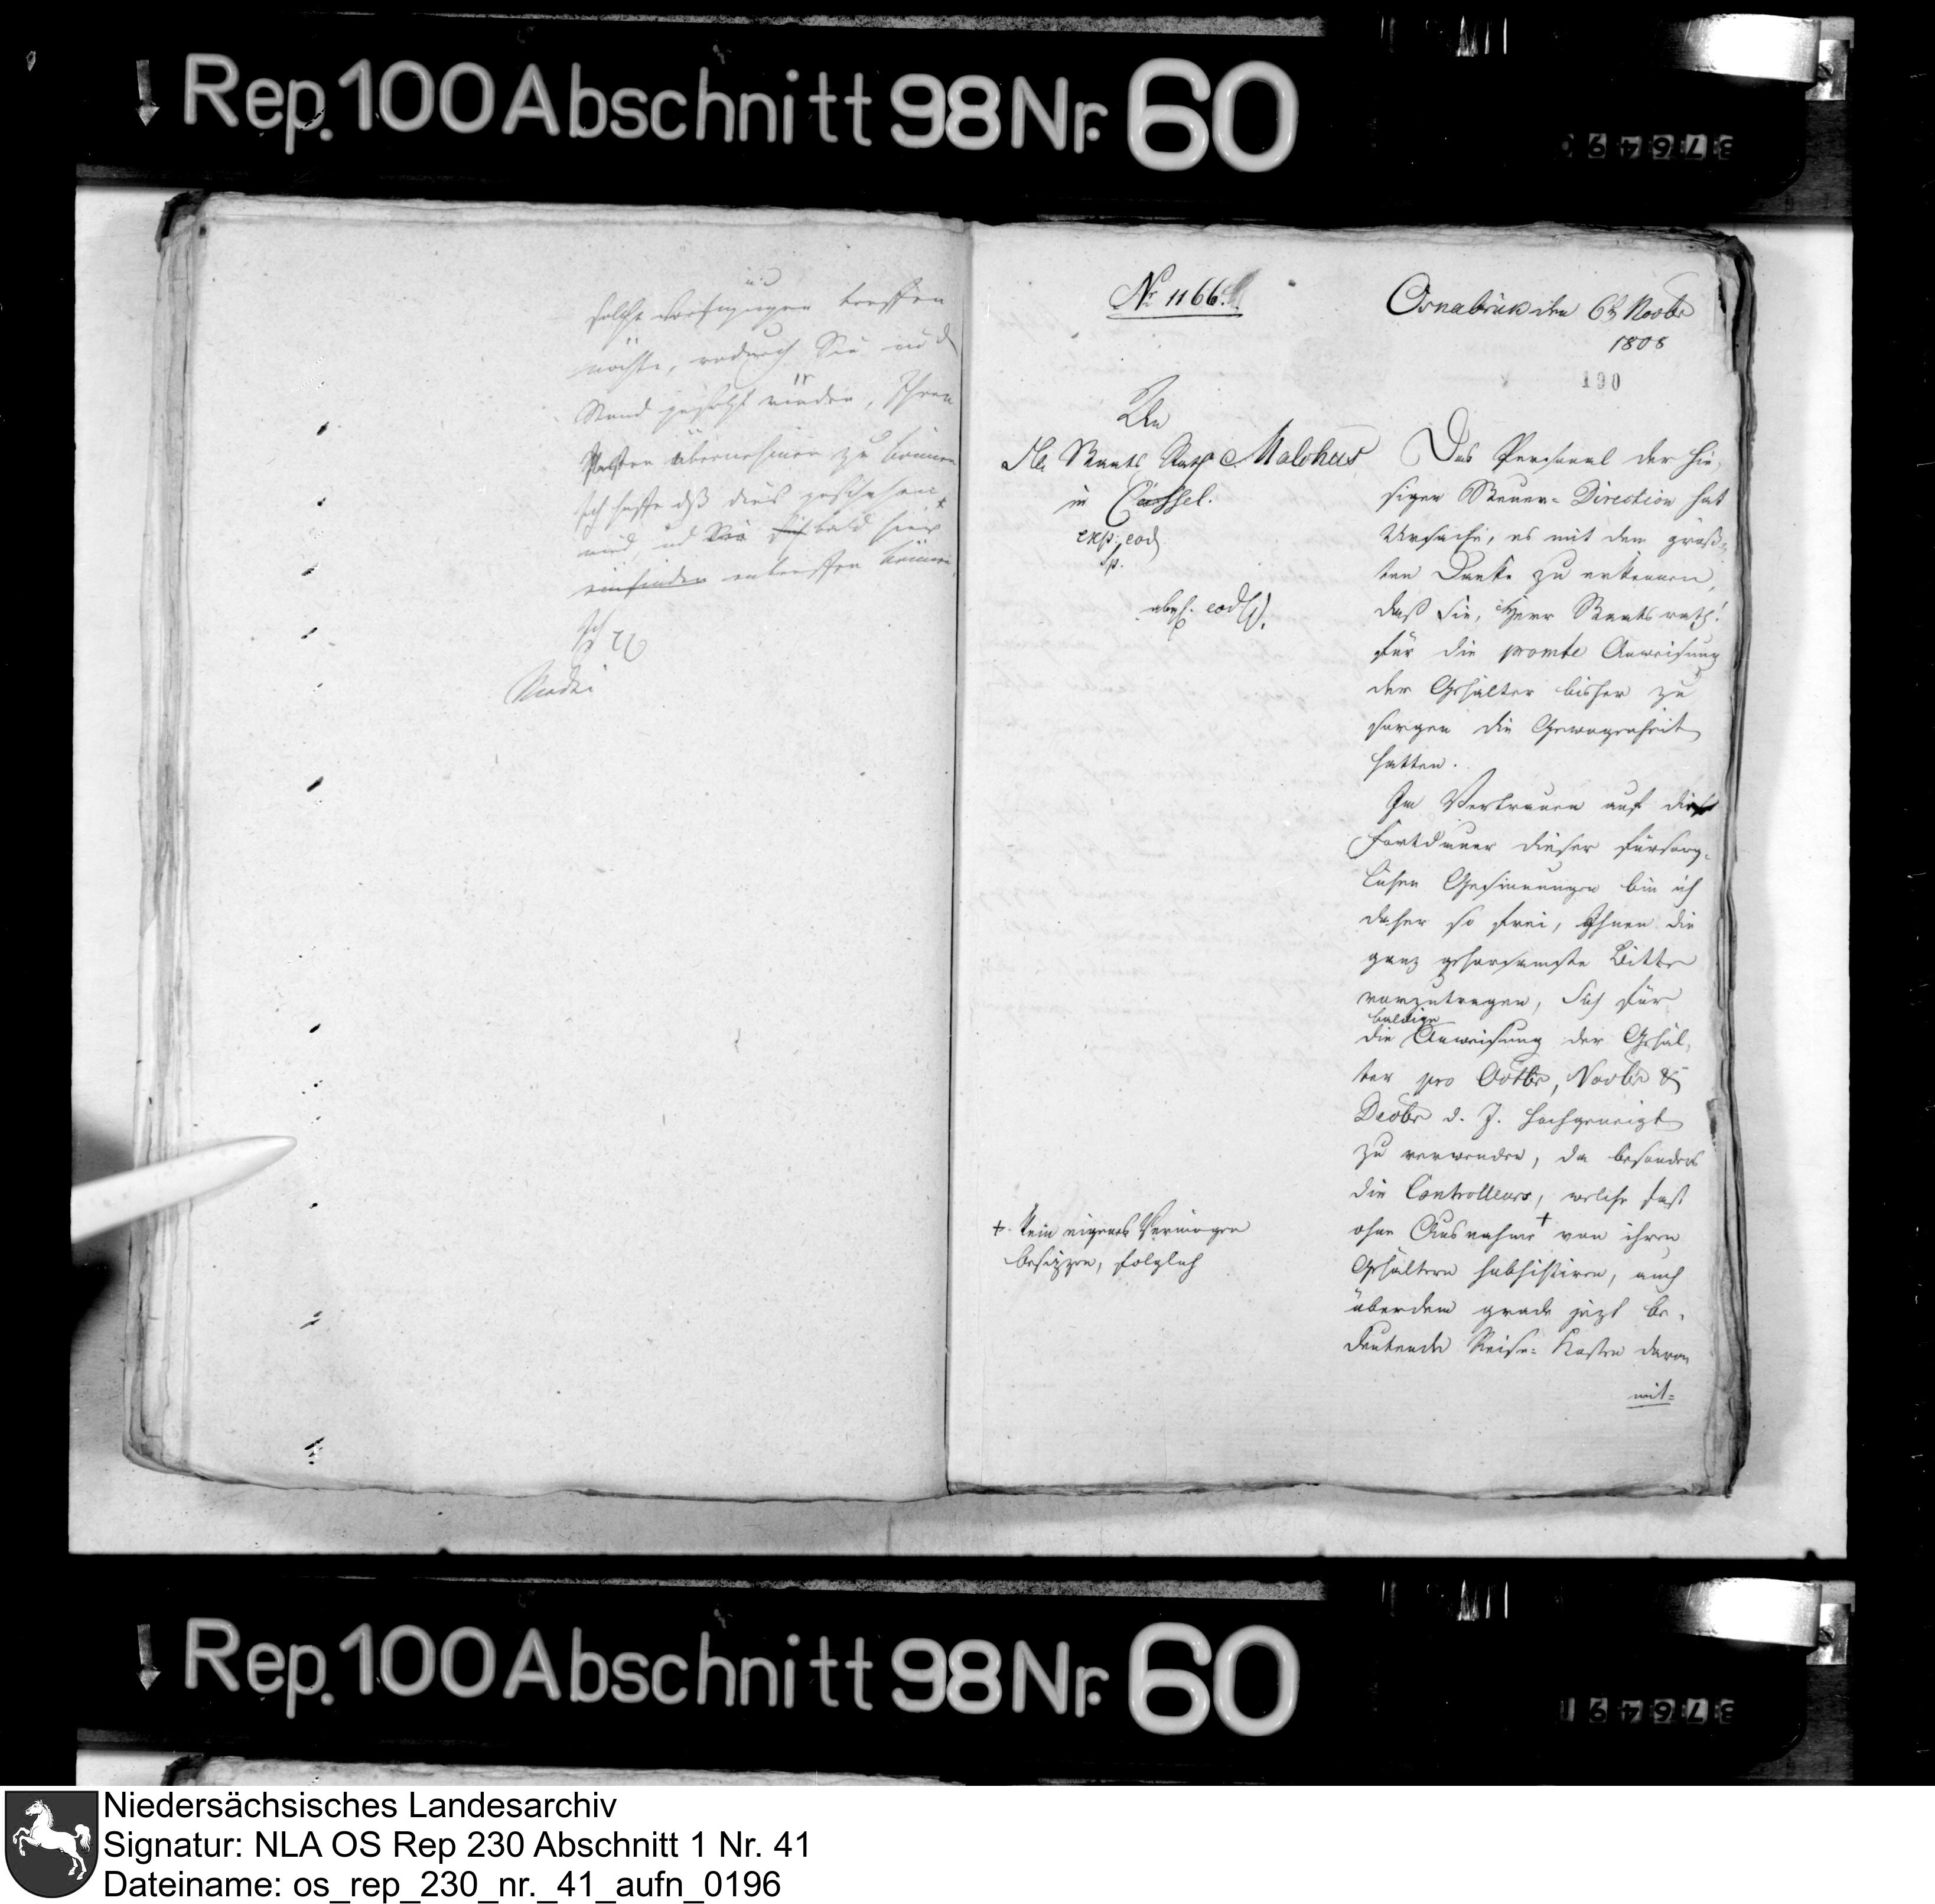 Rep. 100 Abschnitt 98 Nr. 60
376490
solche Verfügungen treffen
möchte, wodurch Sie in d
Stand gesetzt würden, Ihren
Posten übernehmen zu können
Ich hoffe dß dies geschehen
wird, ud Sie sich bald hier
einfinden eintreffen können.
Ich
No 1166.
Osnabrück den 6t Novbr
1808
190
An
Hr. Staats Rath Malchus
in Cassel.
exp. eod
p.
abgs. eod
Das Personal der hie-
sigen Steuer-Direction hat
Ursache, es mit dem größ-
ten Danke zu erkennen,
daß Sie, Herr Staatsrath!
für die promte Anweisung
der Gehälter bisher zu
sorgen die Gewogenheit
hatten.
Im Vertrauen auf die
Fortdauer dieser fürsorg-
lichen Gesinnungen bin ich
daher so frei, Ihnen die
ganz gehorsamste Bitte
vorzutragen, Sich für
baldige
die Anweisung der Gehäl-
ter pro Octbr, Novbr &
Decbr d. J. hochgeneigt
zu verwenden, da besonders
die Controlleurs, welche fast
ohne Ausnahme + von ihren
Gehältern subsistiren, auch
überdem grade jezt be-
deutende Reise-Kosten davon
mit-
+ kein eigenes Vermögen
besizzen, folglich
Rep. 100 Abschnitt 98 Nr. 60
376491
Niedersächsisches Landesarchiv
Signatur: NLA OS Rep 230 Abschnitt 1 Nr. 41
Dateiname: os_rep_230_nr._41_aufn_0196